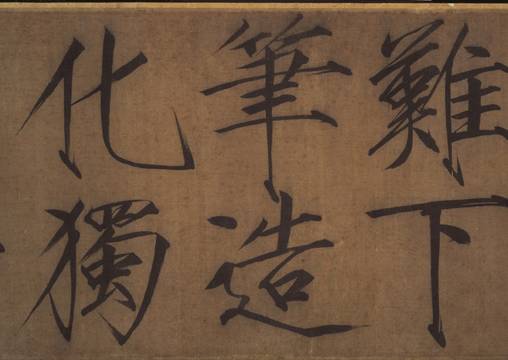 難下
筆造
化獨